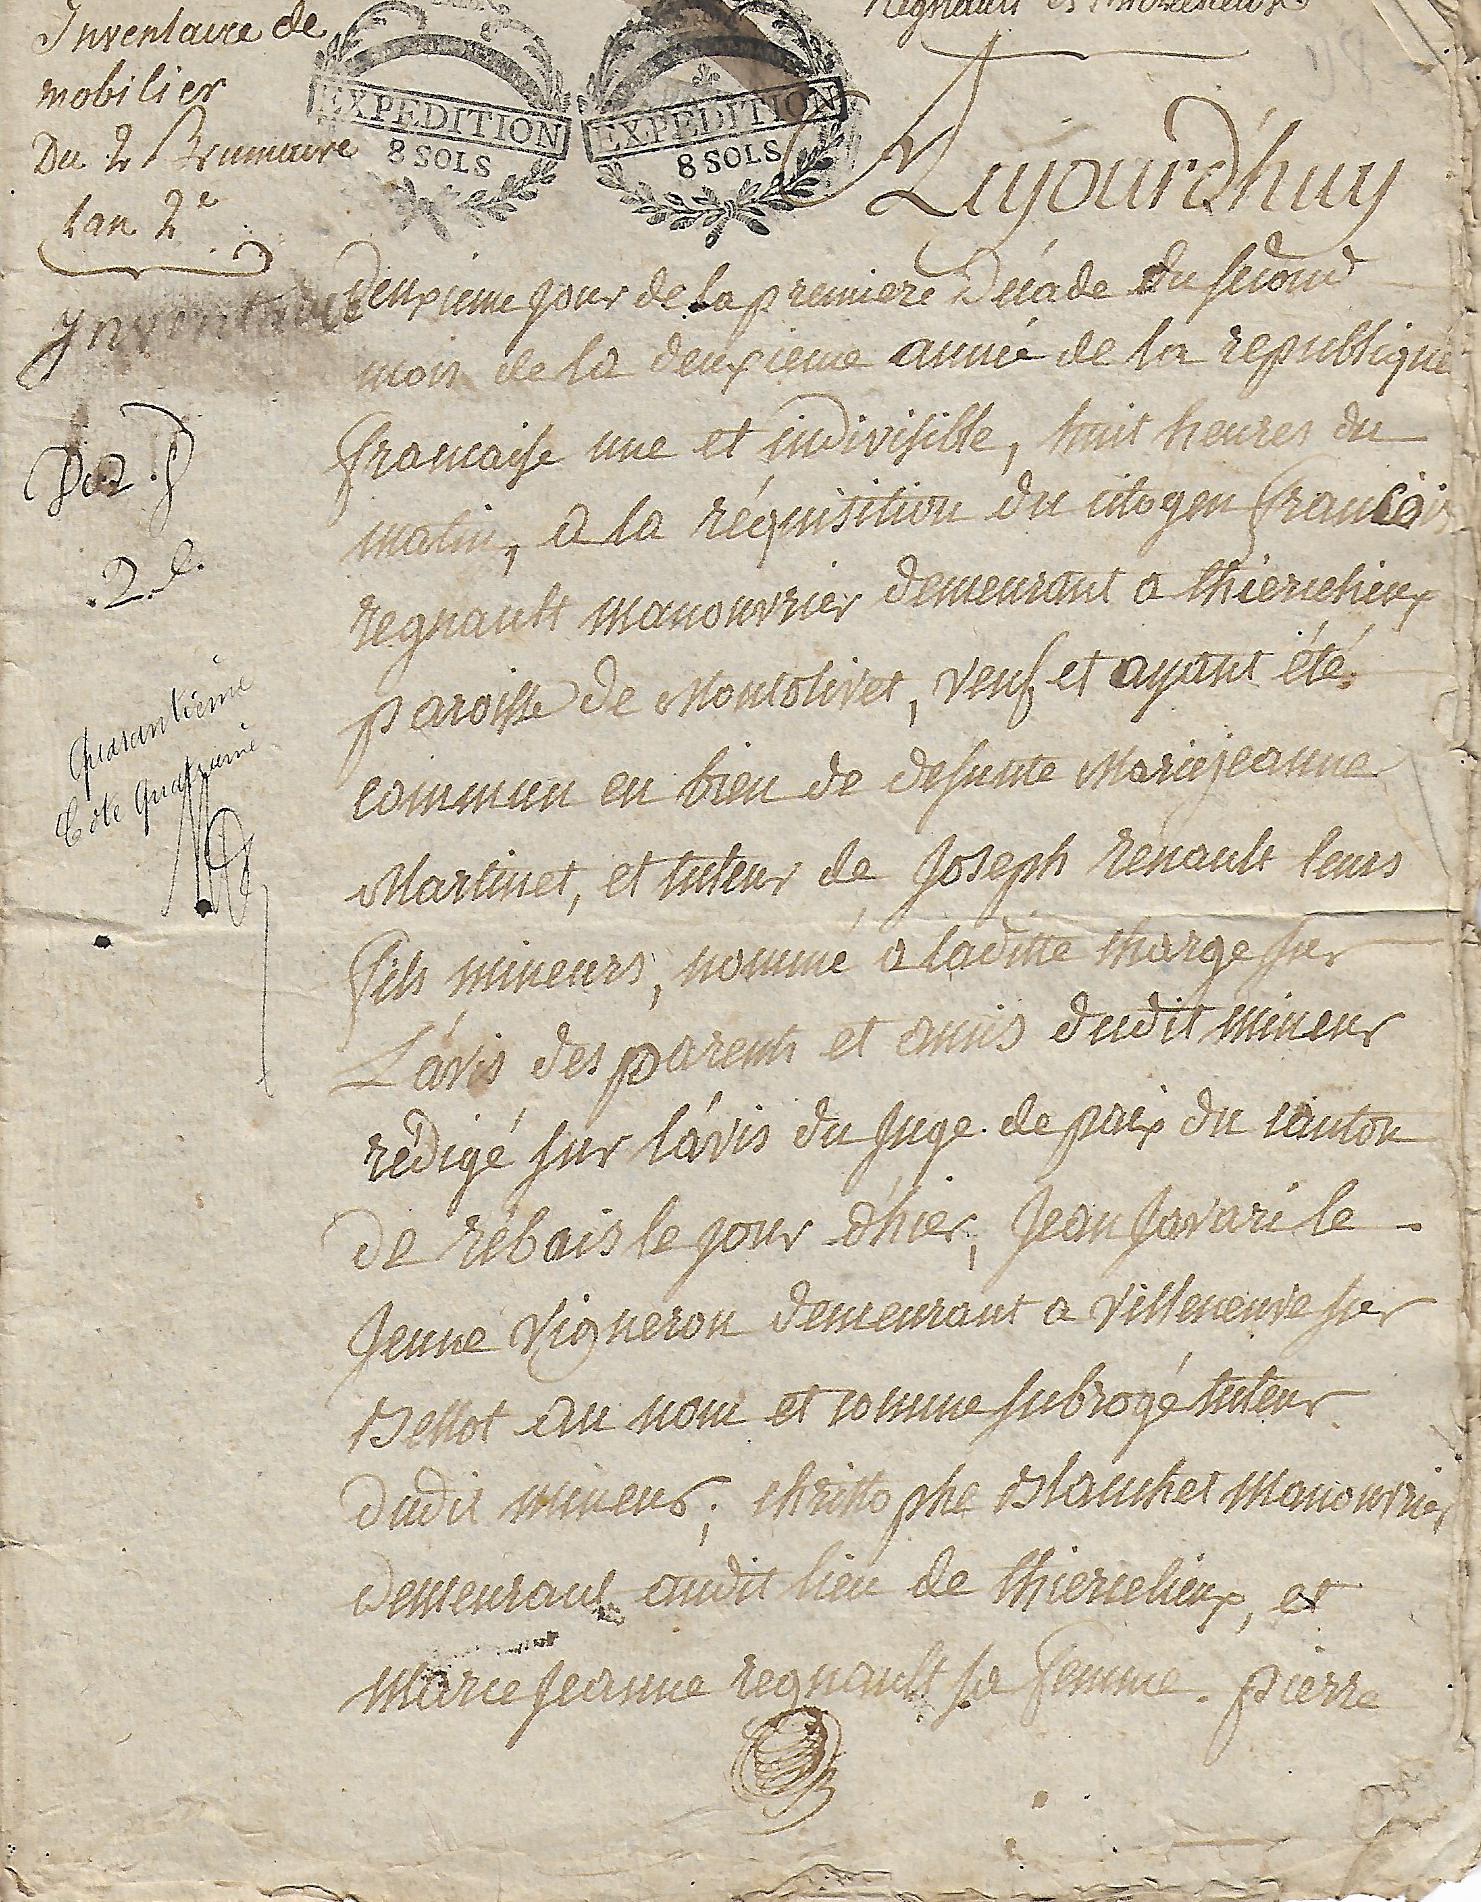 Inventaire de
mobilier
Du 2 Brumaire
Lan 2e
EXPEDITION
8 SOLS
EXPEDITION
8 SOLS
Regnault
Inventaire
Du 2.
2.e.
Quarantième
Cote Quatrieme
Aujourd'huy
deuxieme jour de la premiere Décade du second
mois de la deuxieme année de la republique
francaise une et indivisible, huit heures du
matin, a la réquisition du citoyen francois
regnault manouvrier demeurant a thiercelieux
paroisse de Montolivet, veuf et ayant été
commun en bien de defunte Marie jeanne
Martinet, et tuteur de Joseph renault leurs
fils mineurs, nommé a laditte charge sur
L'avis des parents et amis dudit mineur
rédigé sur l'avis du juge de paix du canton
de rébais le jour d'hier, Jean favari le
jeune vigneron demeurant a villeneuve sur
Bellot au nom et comme subrogé tuteur
dudit mineur, christophe Blanchet manouvrier
demeurant audit lieu de thiercelieux, et
marie jeanne regnault sa femme. pierre